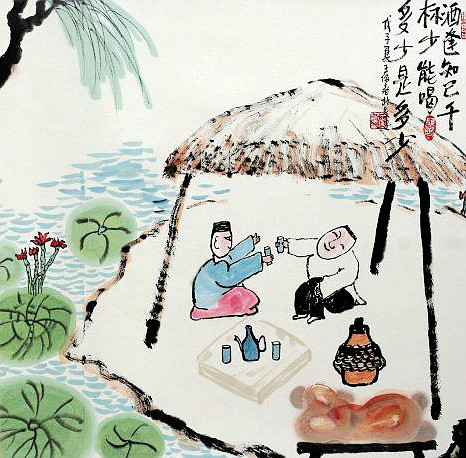 酒逢知己千
杯少能喝
多少是多少
戊子夏